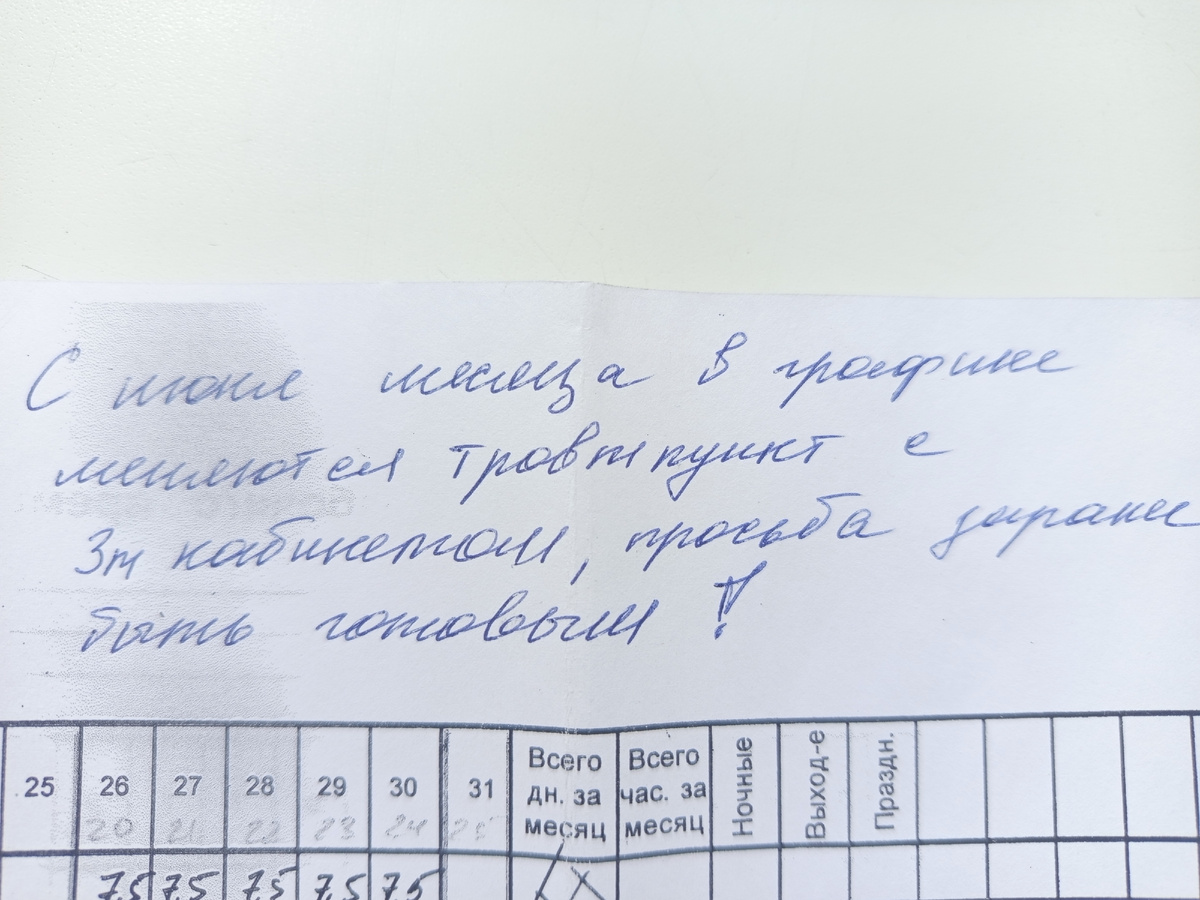 С июня месяца в графике
меняются травмпункт с
3м кабинетом, просьба заранее
быть готовым!
25 26 27 28 29 30 31 Всего дн. за месяц Всего час. за месяц Ночные Выход-е Праздн.
20 21 22 23 24 25
7.5 7.5 7.5 7.5 7.5